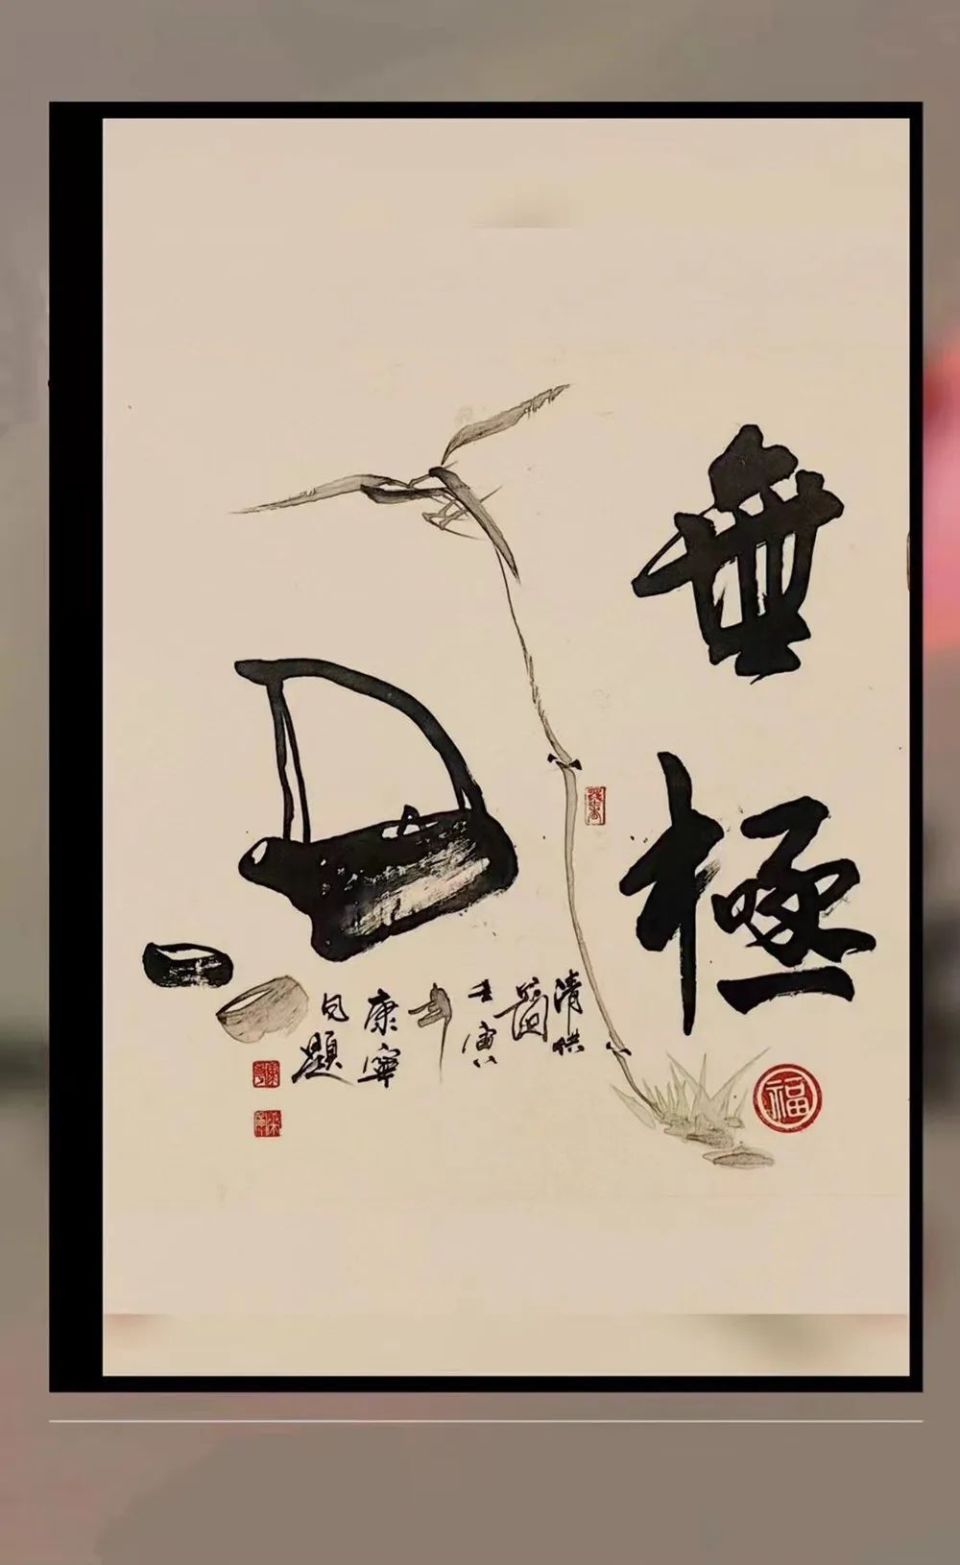 無極
清供
圖
壬寅
年
康寧
自題
福